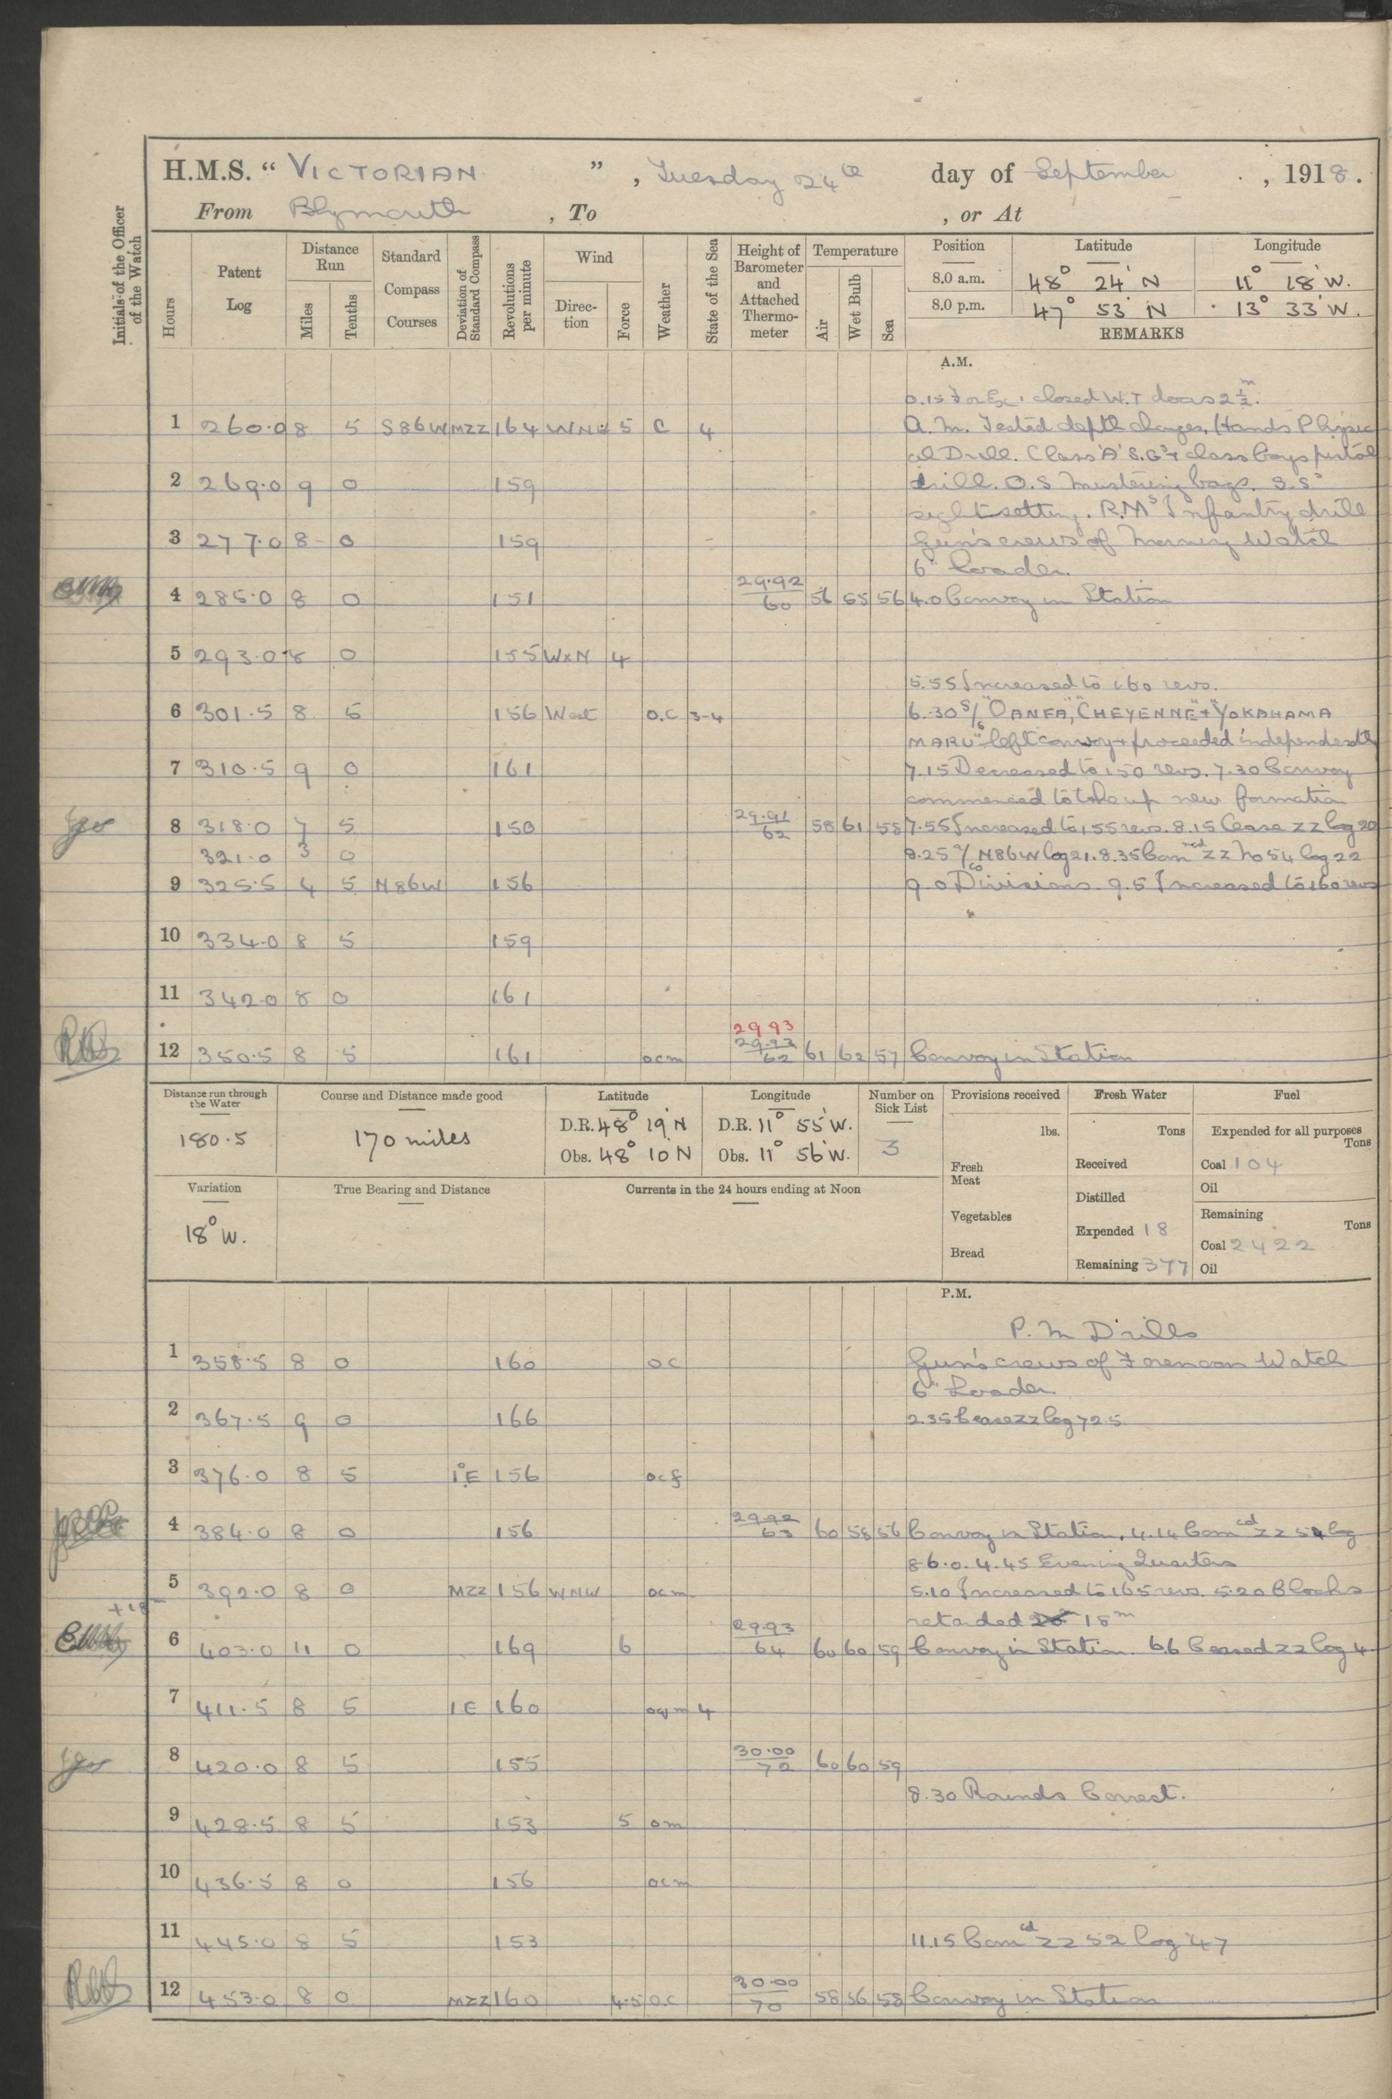 H.M.S. “ VICTORIAN ”, Tuesday 24th day of September, 1918.
From Plymouth, To , or At
Initials of the Officer of the Watch
Hours
Patent Log
Distance Run
Miles
Tenths
Standard Compass Courses
Deviation of Standard Compass
Revolutions per minute
Wind
Direction
Force
Weather
State of the Sea
Height of Barometer and Attached Thermometer
Temperature
Air
Wet Bulb
Sea
Position Latitude Longitude
8.0 a.m. 48° 24' N 11° 18' W.
8.0 p.m. 47° 53' N 13° 33' W.
REMARKS
A.M.
0.15 For Ex. closed W.T doors 2½m.
1 260.0 8 5 S86W MZZ 164 WNW 5 C 4 A.M. Tested depth charges, Hands Physic
al Drill. Class 'A' S.Gs + class boys pistol
2 269.0 9 0 159 drill. O.S mustering bags. S.Ss
sightsetting. R.Ms Infantry drill
3 277.0 8 0 159 Gun's crews of Morning Watch
6" Loader.
4 285.0 8 0 151 29.92 60 56 55 56 4.0 Convoy in Station
5 293.0 8 0 155 WxN 4
5.55 Increased to 160 revs.
6 301.5 8 5 156 West O.C 3-4 6.30 S/s "OANFA", "CHEYENNE" + "YOKAHAMA
MARU" left convoy + proceeded independently
7 310.5 9 0 161 7.15 Decreased to 150 revs. 7.30 Convoy
commenced to take up new formation
8 318.0 7 5 150 29.91 62 58 61 58 7.55 Increased to 155 revs. 8.15 Cease ZZ log 20
321.0 3 0 8.25 a/c N86W log 21. 8.35 Comced ZZ No 54 log 22
9 325.5 4 5 N86W 156 9.0 Divisions. 9.5 Increased to 160 revs
10 334.0 8 5 159
11 342.0 8 0 161
29.93
12 350.5 8 5 161 ocm 29.93 62 61 62 57 Convoy in Station
Distance run through the Water 180.5
Course and Distance made good 170 miles
Latitude D.R. 48° 19' N Obs. 48° 10 N
Longitude D.R. 11° 55' W. Obs. 11° 56' W.
Number on Sick List 3
Provisions received lbs.
Fresh Meat
Vegetables
Bread
Fresh Water Tons
Received
Distilled
Expended 18
Remaining 377
Fuel
Expended for all purposes Tons
Coal 104
Oil
Remaining Tons
Coal 2422
Oil
Variation 18° W.
True Bearing and Distance
Currents in the 24 hours ending at Noon
P.M.
P.M Drills
1 358.5 8 0 160 oc Gun's crews of Forenoon Watch
6" Loader
2 367.5 9 0 166 2.35 Cease ZZ log 72.5
3 376.0 8 5 1°E 156 ocf
4 384.0 8 0 156 29.92 63 60 58 56 Convoy in Station. 4.14 Comcd ZZ 54 log
86.0. 4.45 Evening Quarters
5 392.0 8 0 MZZ 156 WNW ocm 5.10 Increased to 165 revs. 5.20 Clocks
+18m retarded 18m
6 403.0 11 0 169 6 29.93 64 60 60 59 Convoy in Station. 6.6 Ceased ZZ log 4
7 411.5 8 5 1E 160 oqm 4
8 420.0 8 5 155 30.00 72 60 60 59
8.30 Rounds Correct.
9 428.5 8 5 153 5 om
10 436.5 8 0 156 ocm
11 445.0 8 5 153 11.15 Comcd ZZ 52 log 47
12 453.0 8 0 MZZ 160 4.5 O.C 30.00 70 58 56 58 Convoy in Station